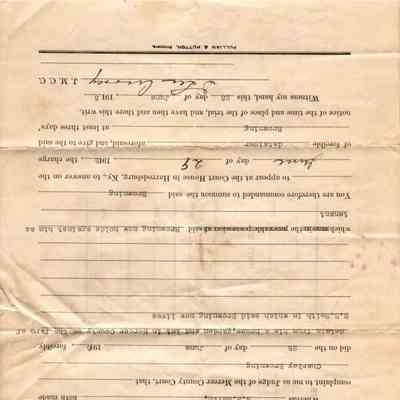 complaint to me as Judge of the Mercer County Court, that,
Browning
did on the 25 day of June 191 , forcible
detain from him a house, garden and lot in Mercer County on the farm of
Smith in which said Browning now lives
said Browning now holds against him as
tenant
You are therefore commanded to summon the said Browning
to appear at the Court House in Harrodsburg, Ky., to answer on the
June day of 29 191 , the charge
of forcible detainer aforesaid, and give to the said
Browning at least three days'
notice of the time and place of the trial, and have then and there this writ.
Witness my hand, this 25 day of June 1918
J. M. C. C.